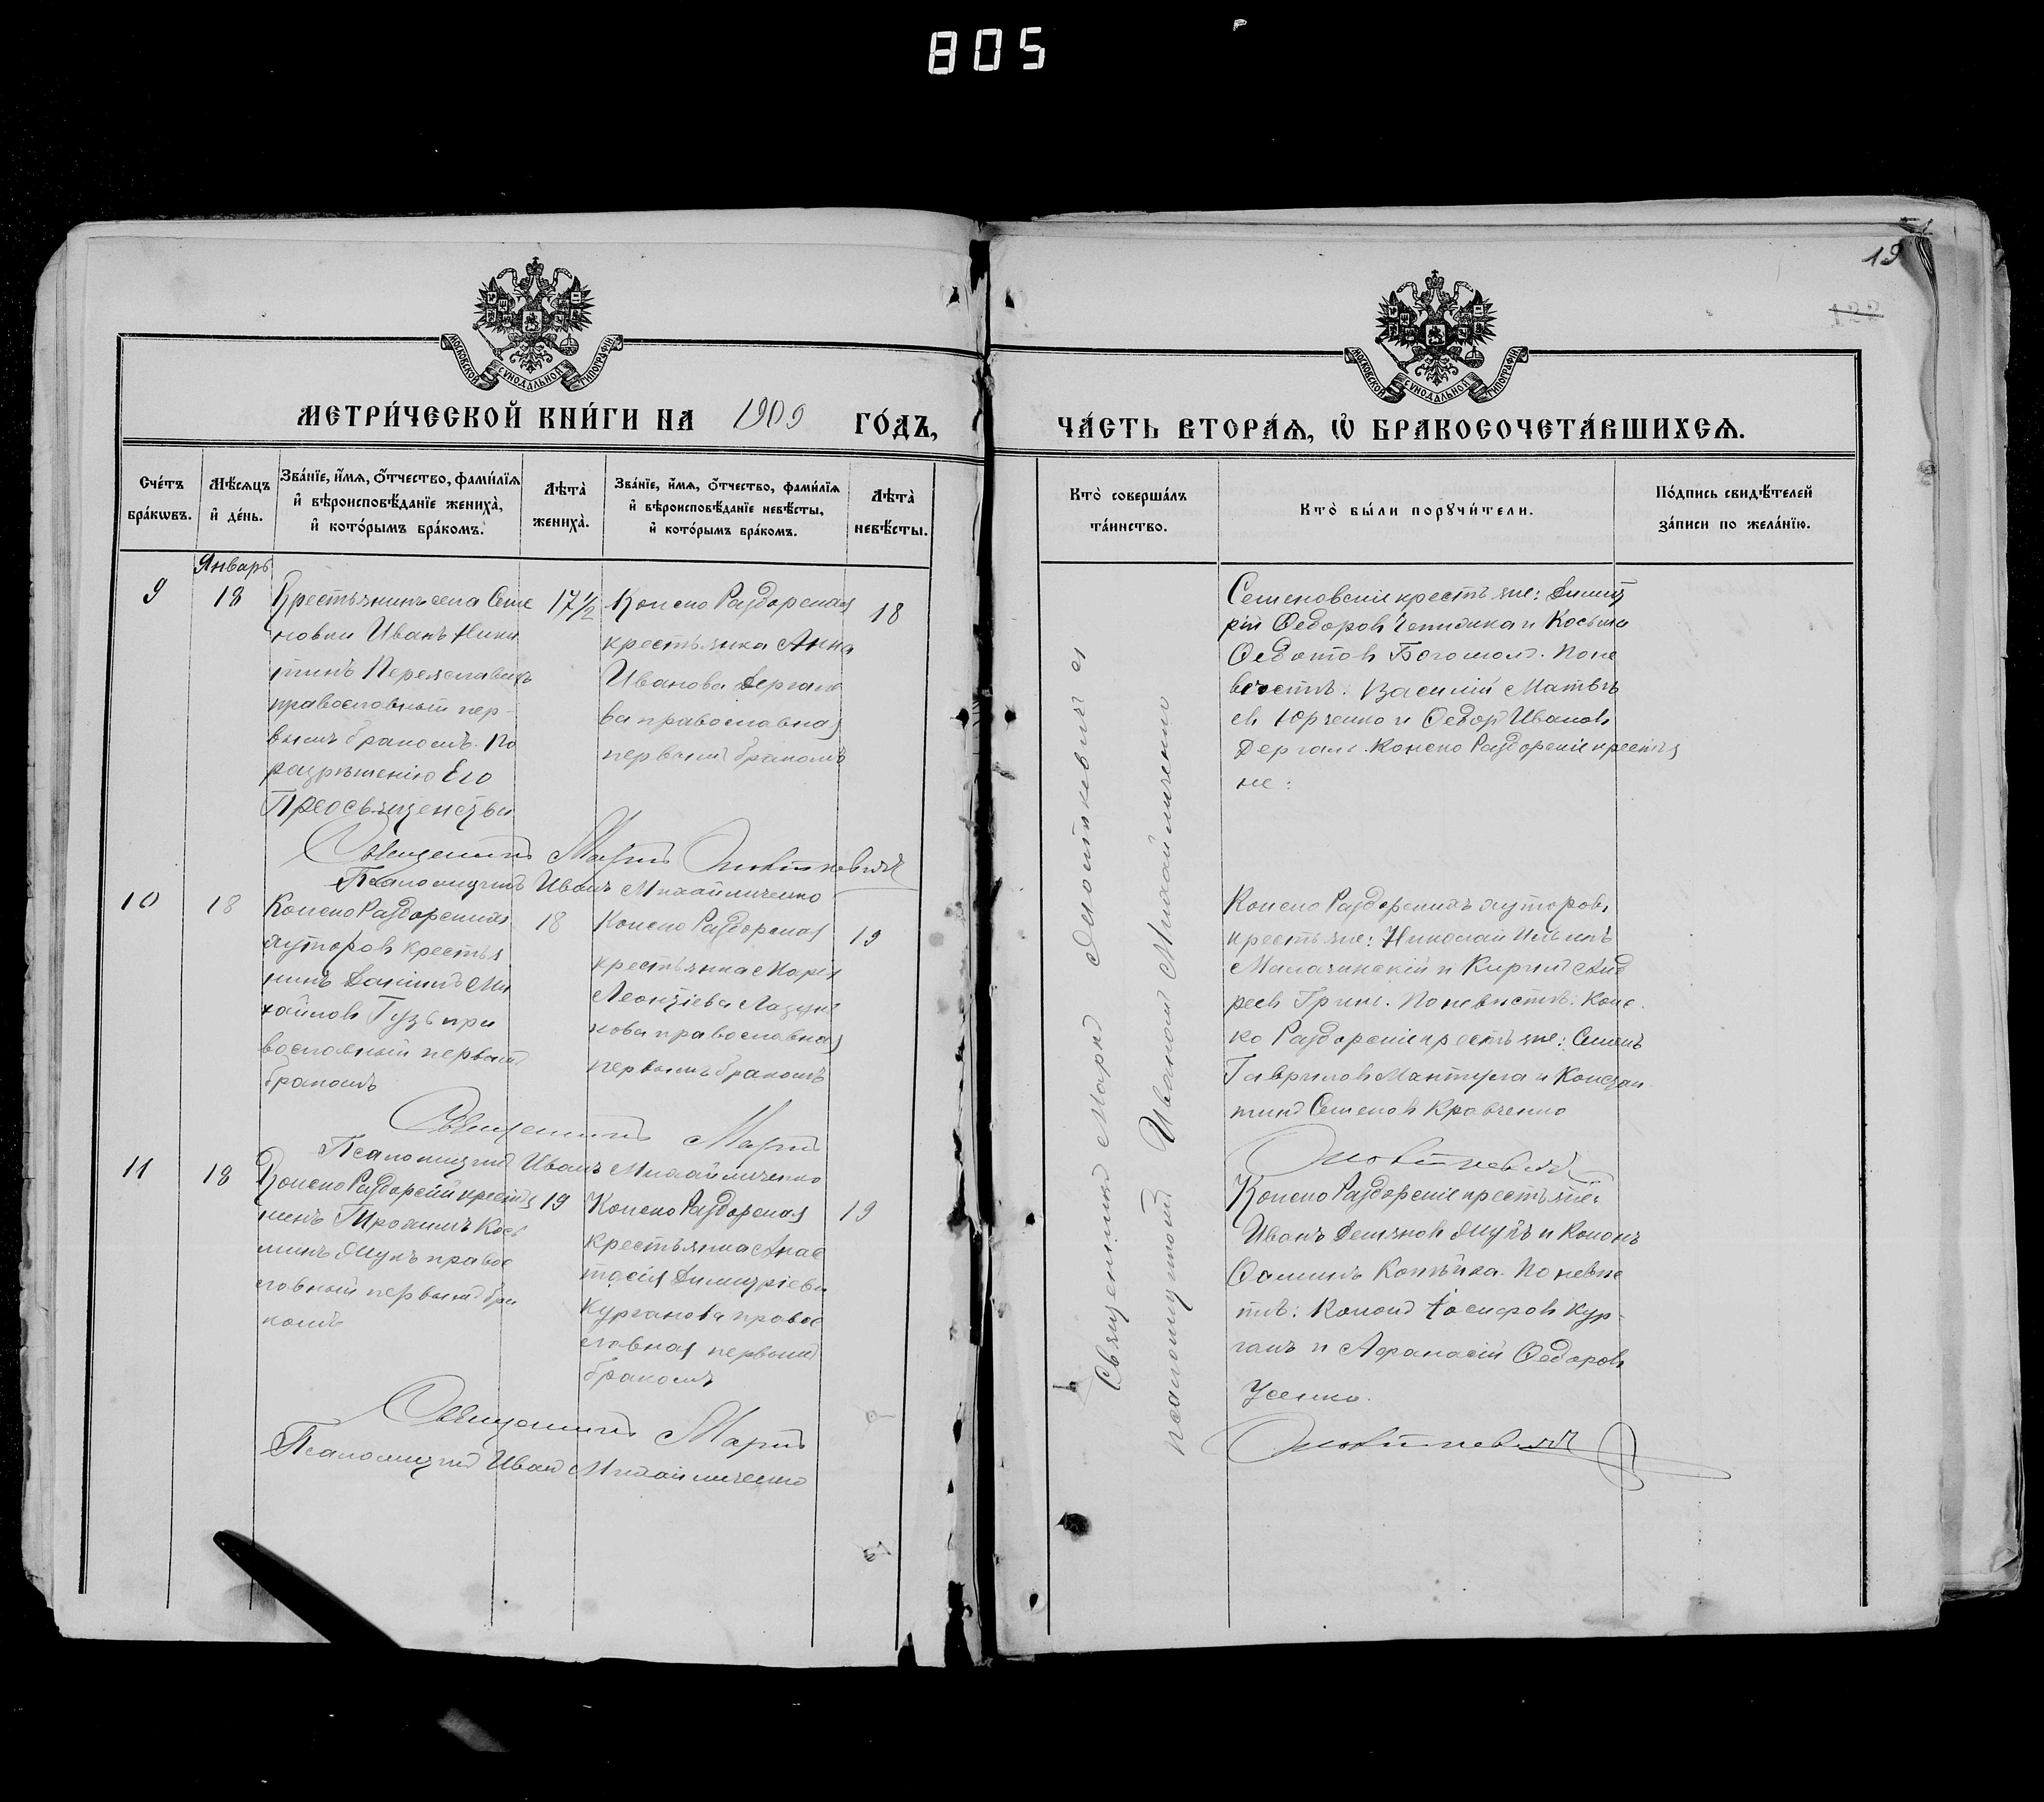 805
19
МОСКОВСКОЙ СѴНОДАЛЬНОЙ ТИПОГРАФІИ
МОСКОВСКОЙ СѴНОДАЛЬНОЙ ТИПОГРАФІИ
МЕТРИ́ЧЕСКОЙ КНИ́ГИ НА 1909 ГО́ДЪ,
ЧА́СТЬ ВТОРА́Ѧ, Ѡ҆ БРАКОСОЧЕТА́ВШИХСѦ.
Сче́тъ
бра́кѡвъ.
Мѣ́сѧцъ
и҆ де́нь.
Зва́нїе, и҆́мѧ, ѻ҆́тчество, фами́лїѧ
и҆ вѣроисповѣ́данїе жениха̀,
и҆ кото́рымъ бра́комъ.
Лѣта̀
жениха̀.
Зва́нїе, и҆́мѧ, ѻ҆́тчество, фами́лїѧ
и҆ вѣроисповѣ́данїе невѣ́сты,
и҆ кото́рымъ бра́комъ.
Лѣта̀
невѣ́сты.
Кто̀ соверша́лъ
та́инство.
Кто̀ бы́ли порꙋчи́тели.
По́дпись свидѣ́телей
за́писи по жела́нїю.
Январь
9
18
Крестьянинъ села Семе
новки Иванъ Ники
тинъ Переяславецъ
православный пер-
вымъ бракомъ. По
разрѣшенію Его
Преосвященства
17½
Конско Раздорская
крестьянка Анна
Иванова Дергаче
ва православная
первымъ бракомъ
18
Семеновскіе крестьяне: Димит
рій Ѳедоровъ и Косьма
Ѳедотовъ Богомолъ. По не
вѣстѣ: Василій Матвѣ
евъ Юрченко и Ѳедоръ Ивановъ
Дергачъ. Конско Раздорскіе крестья
не:
Священникъ Маркъ
Псаломщикъ Иванъ Михайличенко
10
18
Конско Раздорскихъ
хуторовъ крестья
нинъ Даніилъ Ми
хайловъ Гузь пра
вославный первымъ
бракомъ
18
Конско Раздорская
крестьянка Марія
Леонтіева
нова православная
первымъ бракомъ
19
Конско Раздорскихъ хуторовъ
крестьяне: Николай Ильинъ
и Кириллъ Анд
реевъ По невѣстѣ: Конс
ко Раздорскіе крестьяне: Семенъ
Гавриловъ Мантула и Констан
тинъ Семеновъ Кравченко
Священникъ Маркъ
Псаломщикъ Иванъ Михайличенко
11
18
Конско Раздорскій крестья
нинъ Трофимъ Кось
минъ правос
лавный первымъ бра
комъ
19
Конско Раздорская
крестьянка Анас
тасія Димитріева
Курганова правос
лавная первымъ
бракомъ
19
Конско Раздорскіе крестьяне:
Иванъ Демяновъ и Кононъ
Ѳоминъ Копѣйка. По невѣс
тѣ: Кононъ Іосифовъ Кур-
ганъ и Аѳанасій Ѳедоровъ
Усенко.
Священникъ Маркъ
Псаломщикъ Иванъ Михайличенко
Священникъ Маркъ
псаломщикомъ Иваномъ Михайличенко